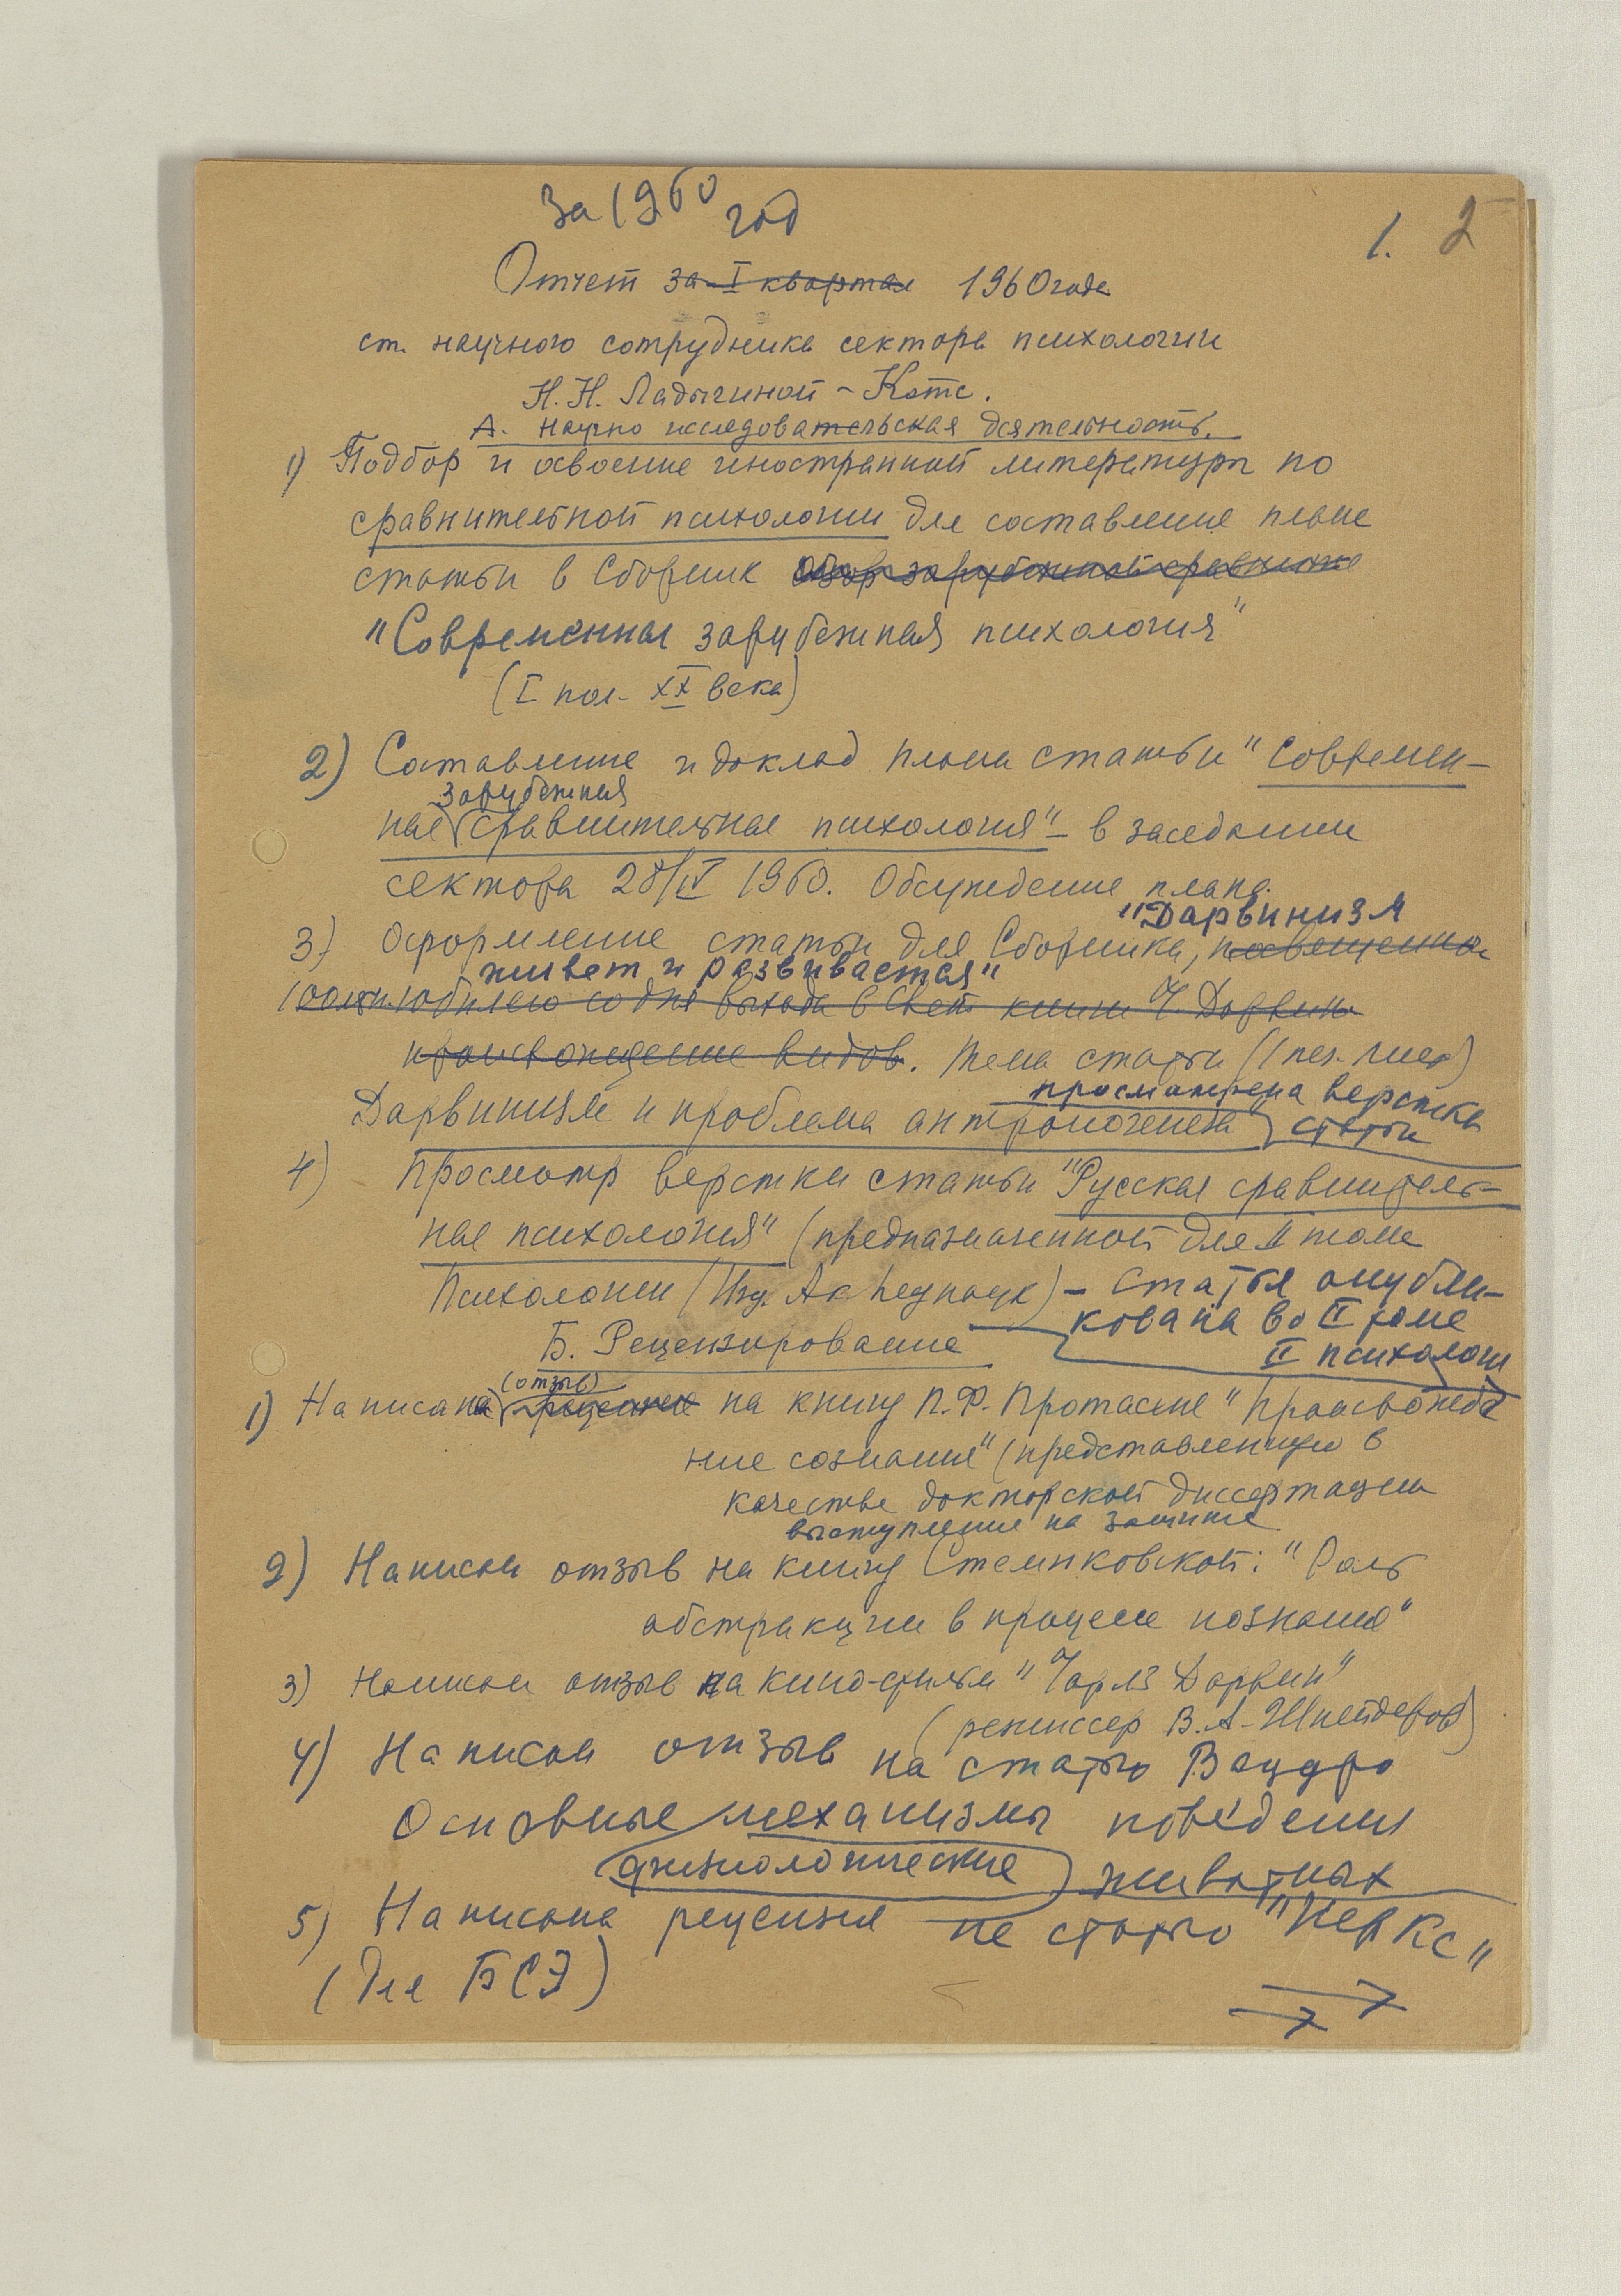 За 1960 год
1. 2
Отчет за I квартал 1960 года
ст. научного сотрудника сектора психологии
Н. Н. Ладыгиной - Котс.
А. Научно исследовательская деятельность.
1) Подбор и освоение иностранной литературы по
сравнительной психологии для составления плана
статьи в Сборник Обзор зарубежной сравните
"Современная зарубежная психология"
(I пол. XX века)
2) Составление и доклад плана статьи "Современ-
зарубежная
ная сравнительная психология" - в заседании
сектора 28/IV 1960. Обсуждение плана.
"Дарвинизм
3) Оформление статьи для Сборника, посвященно
живет и развивается"
100 летн. юбилею со дня выхода в свет книги Ч. Дарвина
происхождение видов. Тема статьи (1 печ. лист)
просмотрена верстка
Дарвинизм и проблема антропогенеза статьи
4) Просмотр верстки статьи "Русская сравнитель-
ная психология" (предназначенной для II тома
Психологии (Изд. Ак Педнаук) - Статья опубли-
кована во II томе
Б. Рецензирование
II психологии
(отзыв)
1) Написана рецензия на книгу П. Ф. Протасеня "Происхожде
ние сознания" (представленную в
качестве докторской диссертации
выступление на защите
2) Написан отзыв на книгу : "Роль
абстракции в процессе познания"
3) Написан отзыв на кино-фильм "Чарлз Дарвин"
(режиссер В. А. Шнейдеров)
4) Написан отзыв на статью Вацуро
Основные механизмы поведения
физиологические животных
5) Написана рецензия на статью "Иеркс"
(Для БСЭ)